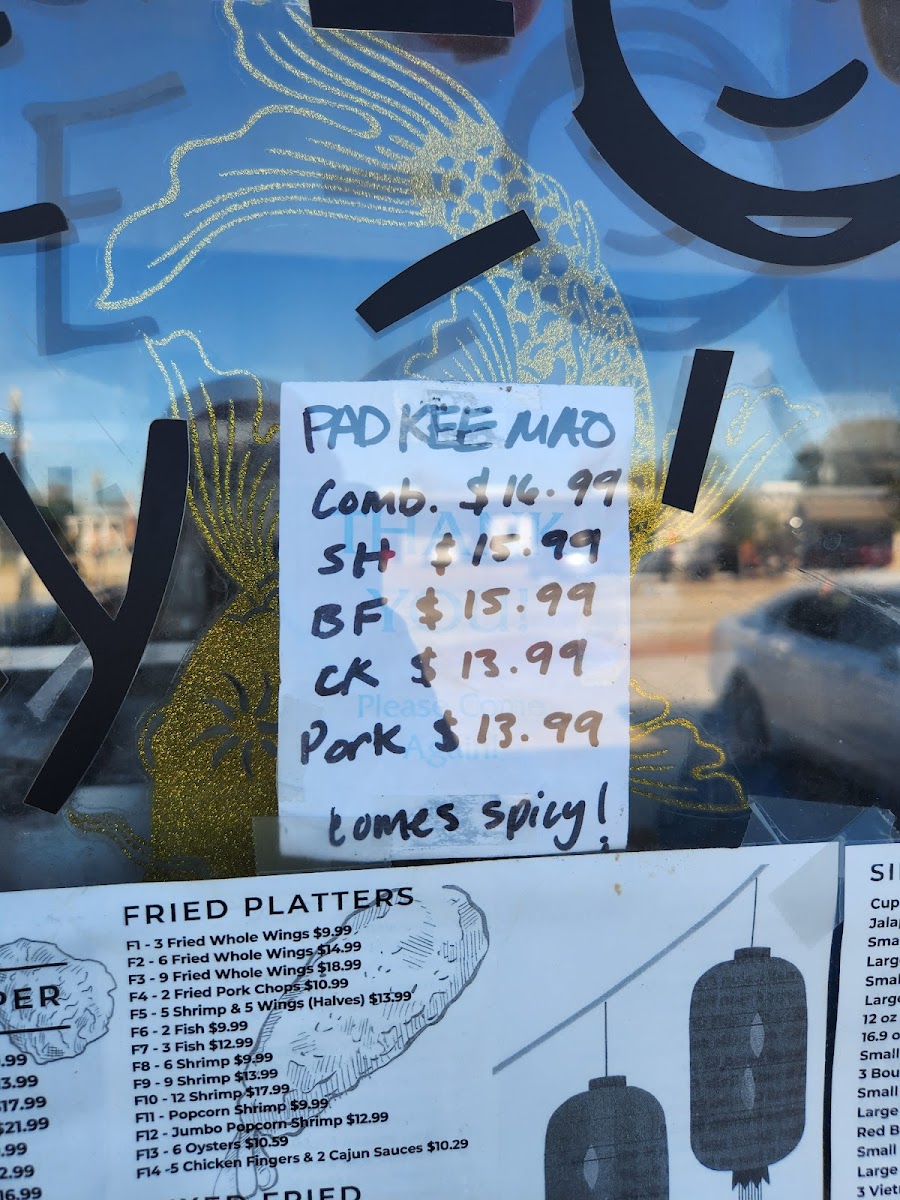 PAD KEE MAO
Comb. $16.99
SH $15.99
BF $15.99
CK $13.99
Pork $13.99
comes spicy!
THANK
YOU!
Please Come
Again!
E
Y
FRIED PLATTERS
F1 - 3 Fried Whole Wings $9.99
F2 - 6 Fried Whole Wings $14.99
F3 - 9 Fried Whole Wings $18.99
F4 - 2 Fried Pork Chops $10.99
F5 - 5 Shrimp & 5 Wings (Halves) $13.99
F6 - 2 Fish $9.99
F7 - 3 Fish $12.99
F8 - 6 Shrimp $9.99
F9 - 9 Shrimp $13.99
F10 - 12 Shrimp $17.99
F11 - Popcorn Shrimp $9.99
F12 - Jumbo Popcorn Shrimp $12.99
F13 - 6 Oysters $10.59
F14 -5 Chicken Fingers & 2 Cajun Sauces $10.29
FRIED
PER
.99
13.99
$17.99
$21.99
.99
2.99
16.99
SI
Cup
Jala
Sma
Larg
Smal
Large
12 oz
16.9 o
Small
3 Bou
Small
Large
Red B
Small
Large
3 Viet